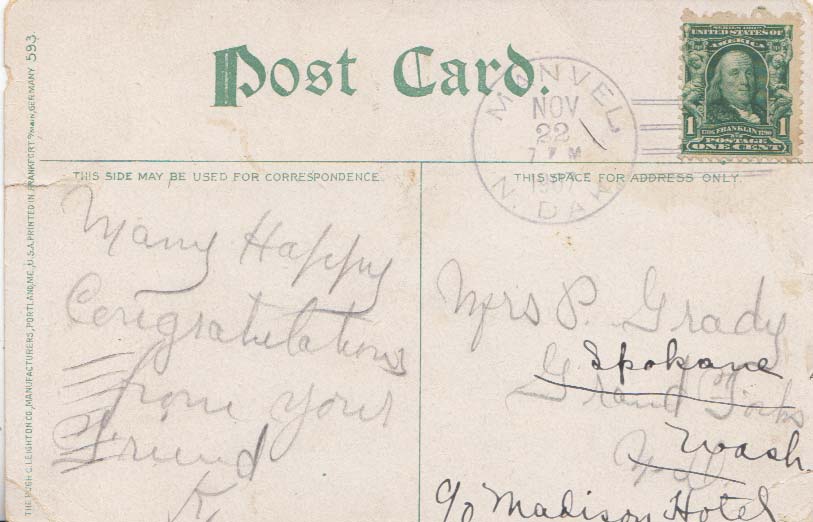 Post Card.
MANVEL,
NOV
22
7 P M
1907
N. DAK.
SERIES 1902
UNITED STATES OF
AMERICA
1 1
POSTAGE
ONE CENT
THIS SIDE MAY BE USED FOR CORRESPONDENCE.
THIS SPACE FOR ADDRESS ONLY.
Many Happy
Congratulations
from your
Friend
K
Mrs P. Grady
Spokane
Grand Forks
Wash.
N D
c/o Madison Hotel
THE HUGH C. LEIGHTON CO., MANUFACTURERS, PORTLAND, ME., U.S.A. PRINTED IN FRANKFORT o/MAIN, GERMANY 593.